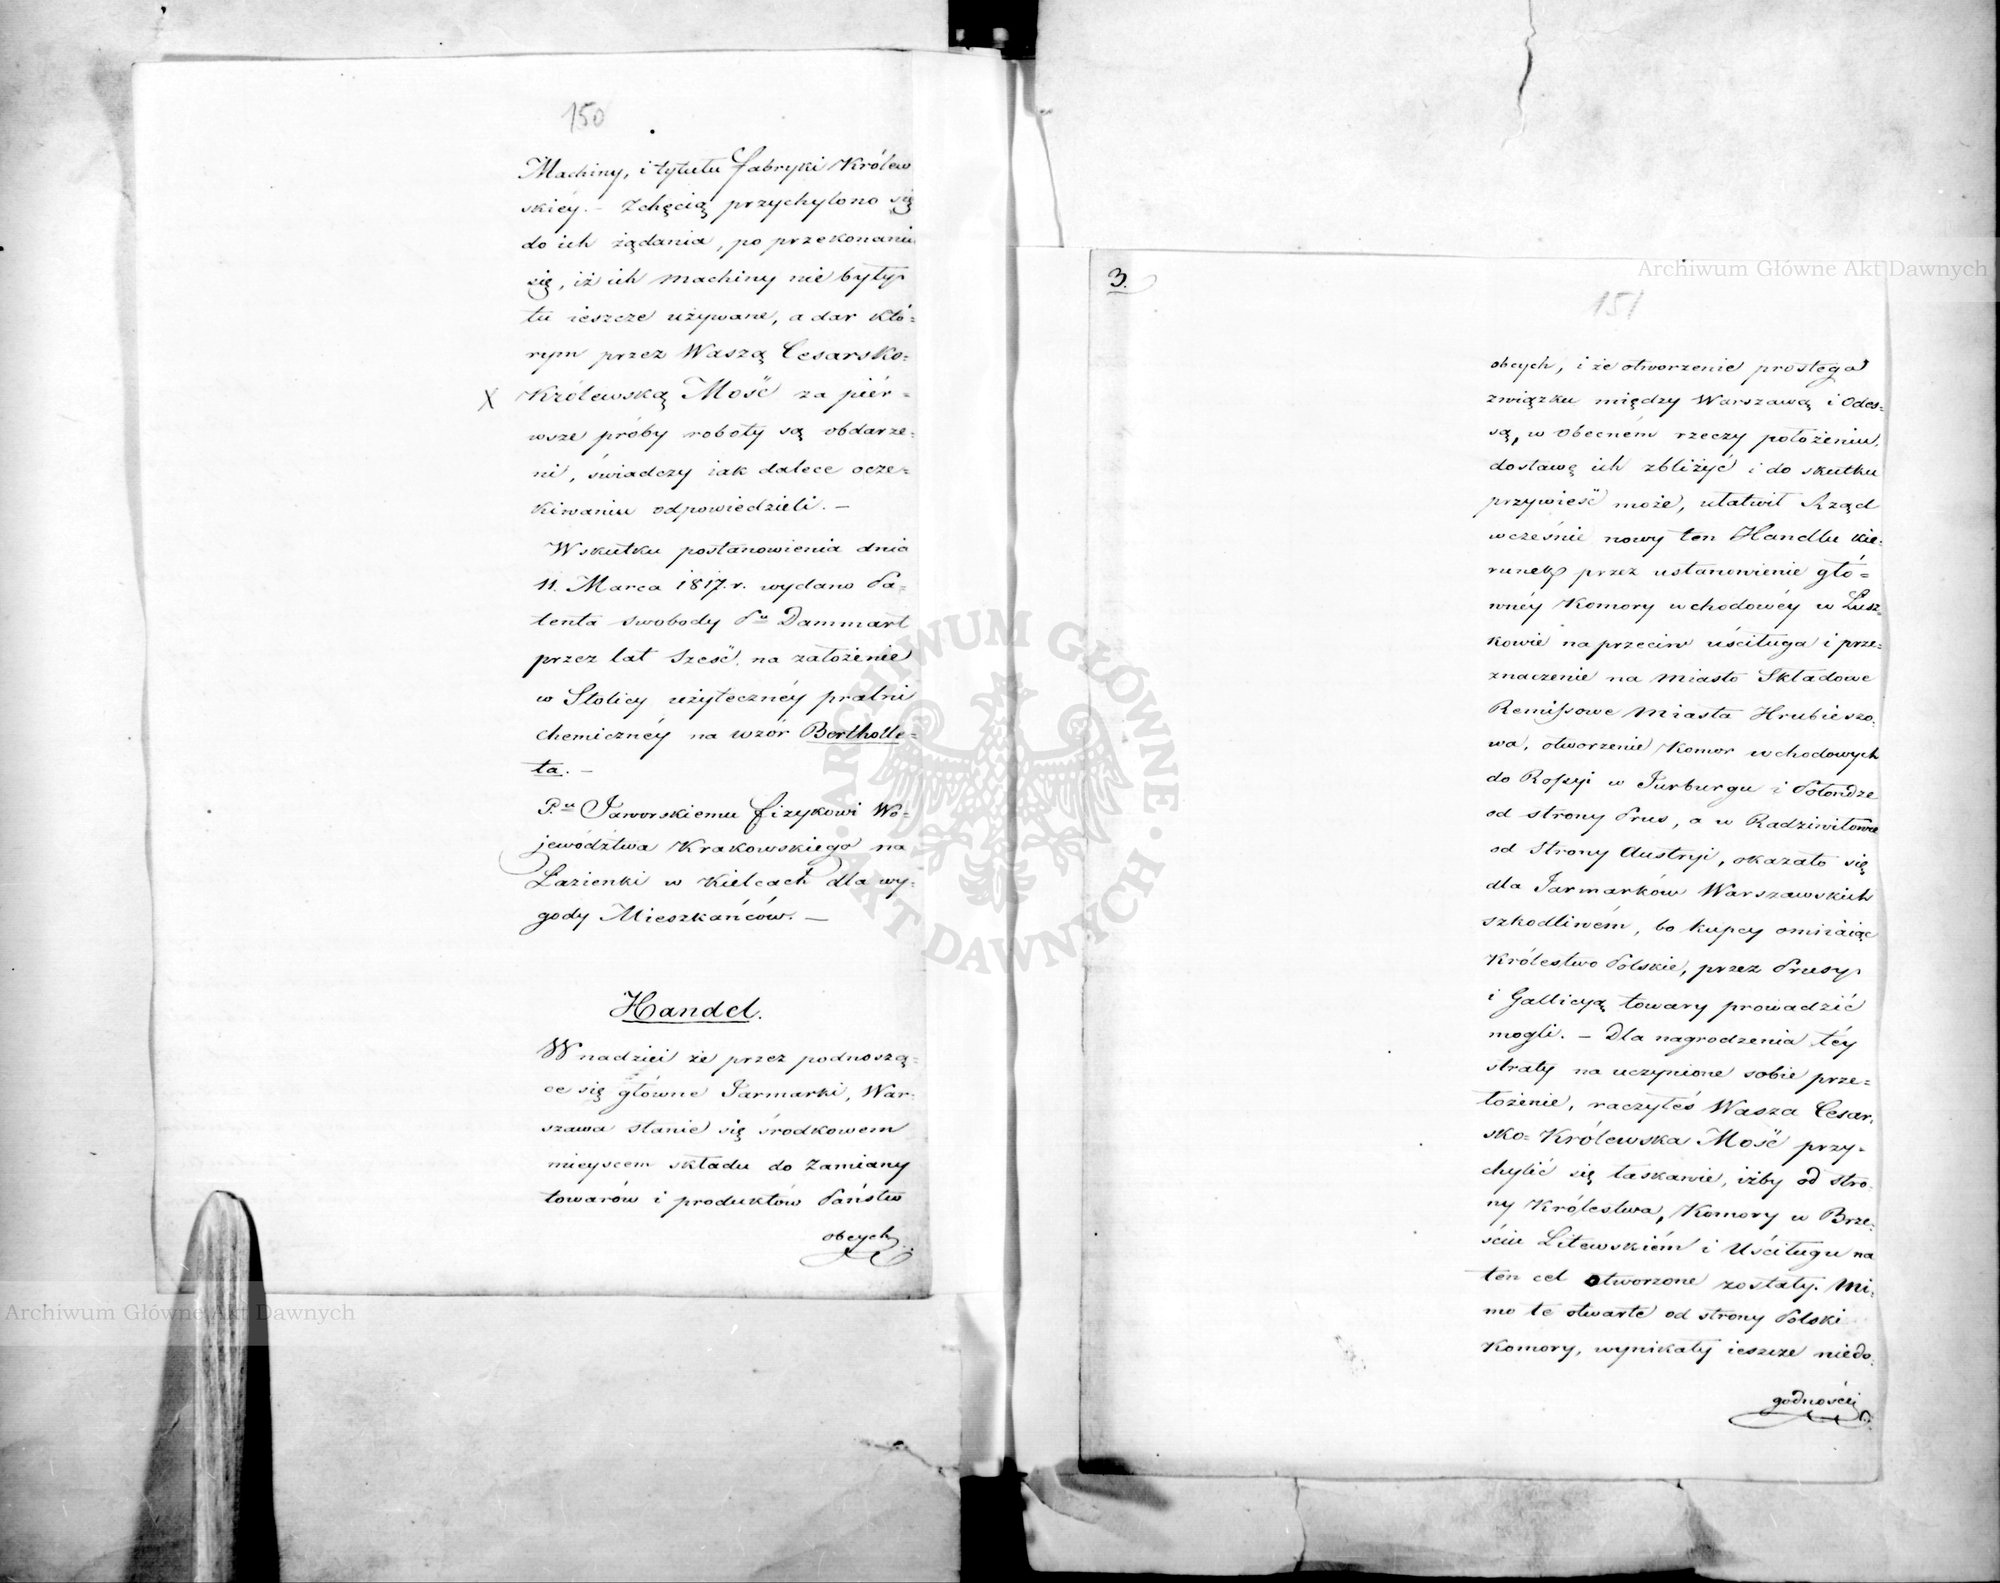 150
Machiny, i tytułu fabryki Królew
skiéy. – Z chęcią przychylono się
do ich żądania, po przekonaniu
się, iż ich machiny nie były
tu ieszcze używane, a dar któ=
rym przez Waszą Cesarsko=
X Królewską Mość za piér=
wsze próby roboty są obdarze=
ni, świadczy iak dalece ocze=
kiwaniu odpowiedzieli. –
W skutku postanowienia dnia
11. Marca 1817. r. wydano Pa=
tenta swobody Pu Dammart
przez lat sześć, na założenie
w Stolicy użytecznéy pralni
chemicznéy na wzór Bertholle=
ta. –
P.u Jaworskiemu fizykowi Wo=
jewództwa Krakowskiego na
Łazienki w Kielcach dla wy=
gody Mieszkańców. –
Handel.
W nadziei że przez podnoszą=
ce się główne Jarmarki, War=
szawa stanie się środkowem
mieyscem składu do zamiany
towarów i produktów Państw
obcych
3.
151
obcych, i że otworzenie prostego
związku między Warszawą i Odes=
są, w obecném rzeczy położeniu,
dostawę ich zbliżyć i do skutku
przywieść może, ułatwił Rząd
wcześnie nowy ten Handlu kie=
runek przez ustanowienie głó=
wnéy Komory wchodowéy w Lusz=
kowie na przeciw uściługa i prze=
znaczenie na miasto Składowe
Remissowe miasta Hrubieszo=
wa, otworzenie Komor wchodowych
do Rossyi w Jurburgu i Połondze
od strony Prus, a w Radziwiłowie
od Strony Austryi, okazało się
dla Jarmarków Warszawskich
szkodliwém, bo kupcy omiiaiąc
Królestwo Polskie, przez Prusy
i Gallicyą towary prowadzić
mogli. – Dla nagrodzenia téy
straty na uczynione sobie prze=
łożenie, raczyłeś Wasza Cesar,
sko= Królewska Mość przy=
chylić się łaskawie, iżby od stro=
ny Królestwa, Komory w Brze=
ściu Litewskiém i Uściługu na
ten cel otworzone zostały. Mi=
mo te otwarte od strony Polski
Komory, wynikały ieszcze niedo=
godności
Archiwum Główne Akt Dawnych
Archiwum Główne Akt Dawnych
ARCHIWUM GŁÓWNE · AKT DAWNYCH ·